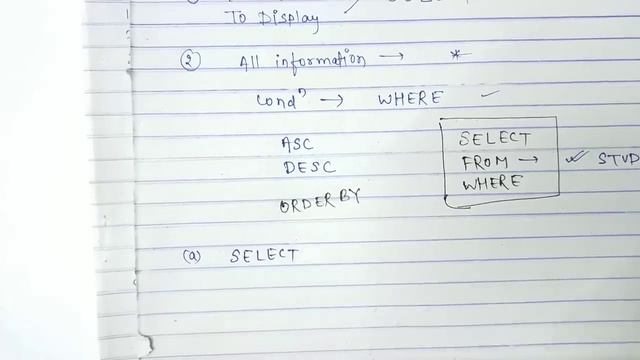 To Display
② All information → *
Condⁿ → WHERE
ASC
DESC
ORDER BY
SELECT
FROM → STUD
WHERE
(a) SELECT